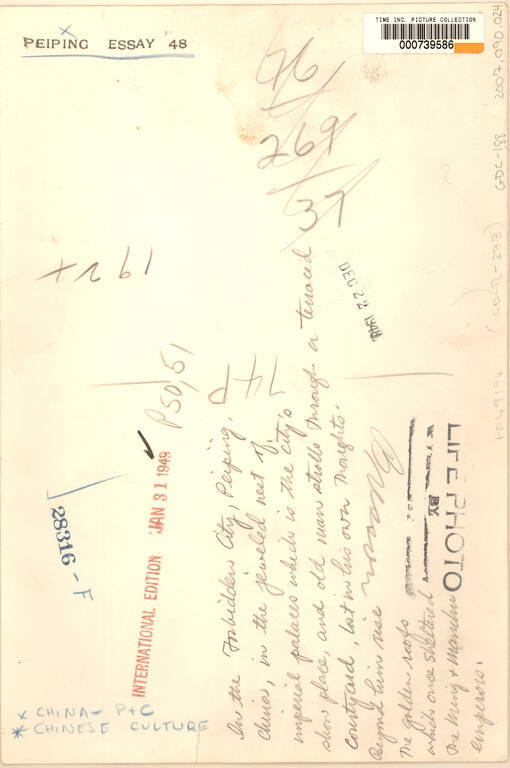 PEIPING ESSAY 48
TIME INC. PICTURE COLLECTION
000739586
2007.090.024
GDC-188
(CD-R-273)
PF49194
96
269
37
192+
DEC 22 1948
P50,51
74P
INTERNATIONAL EDITION JAN 31 1949
28316-F
LIFE PHOTO
BY
In the Forbidden City, Peiping,
China, in the jeweled nest of
imperial palaces which is the city's
show place, and old man strolls through a terraced
courtyard, lost in his own thoughts.
Beyond him rise
the golden roofs
which once sheltered
the Ming + Manchu
emperors.
x CHINA - P+C
* CHINESE CULTURE